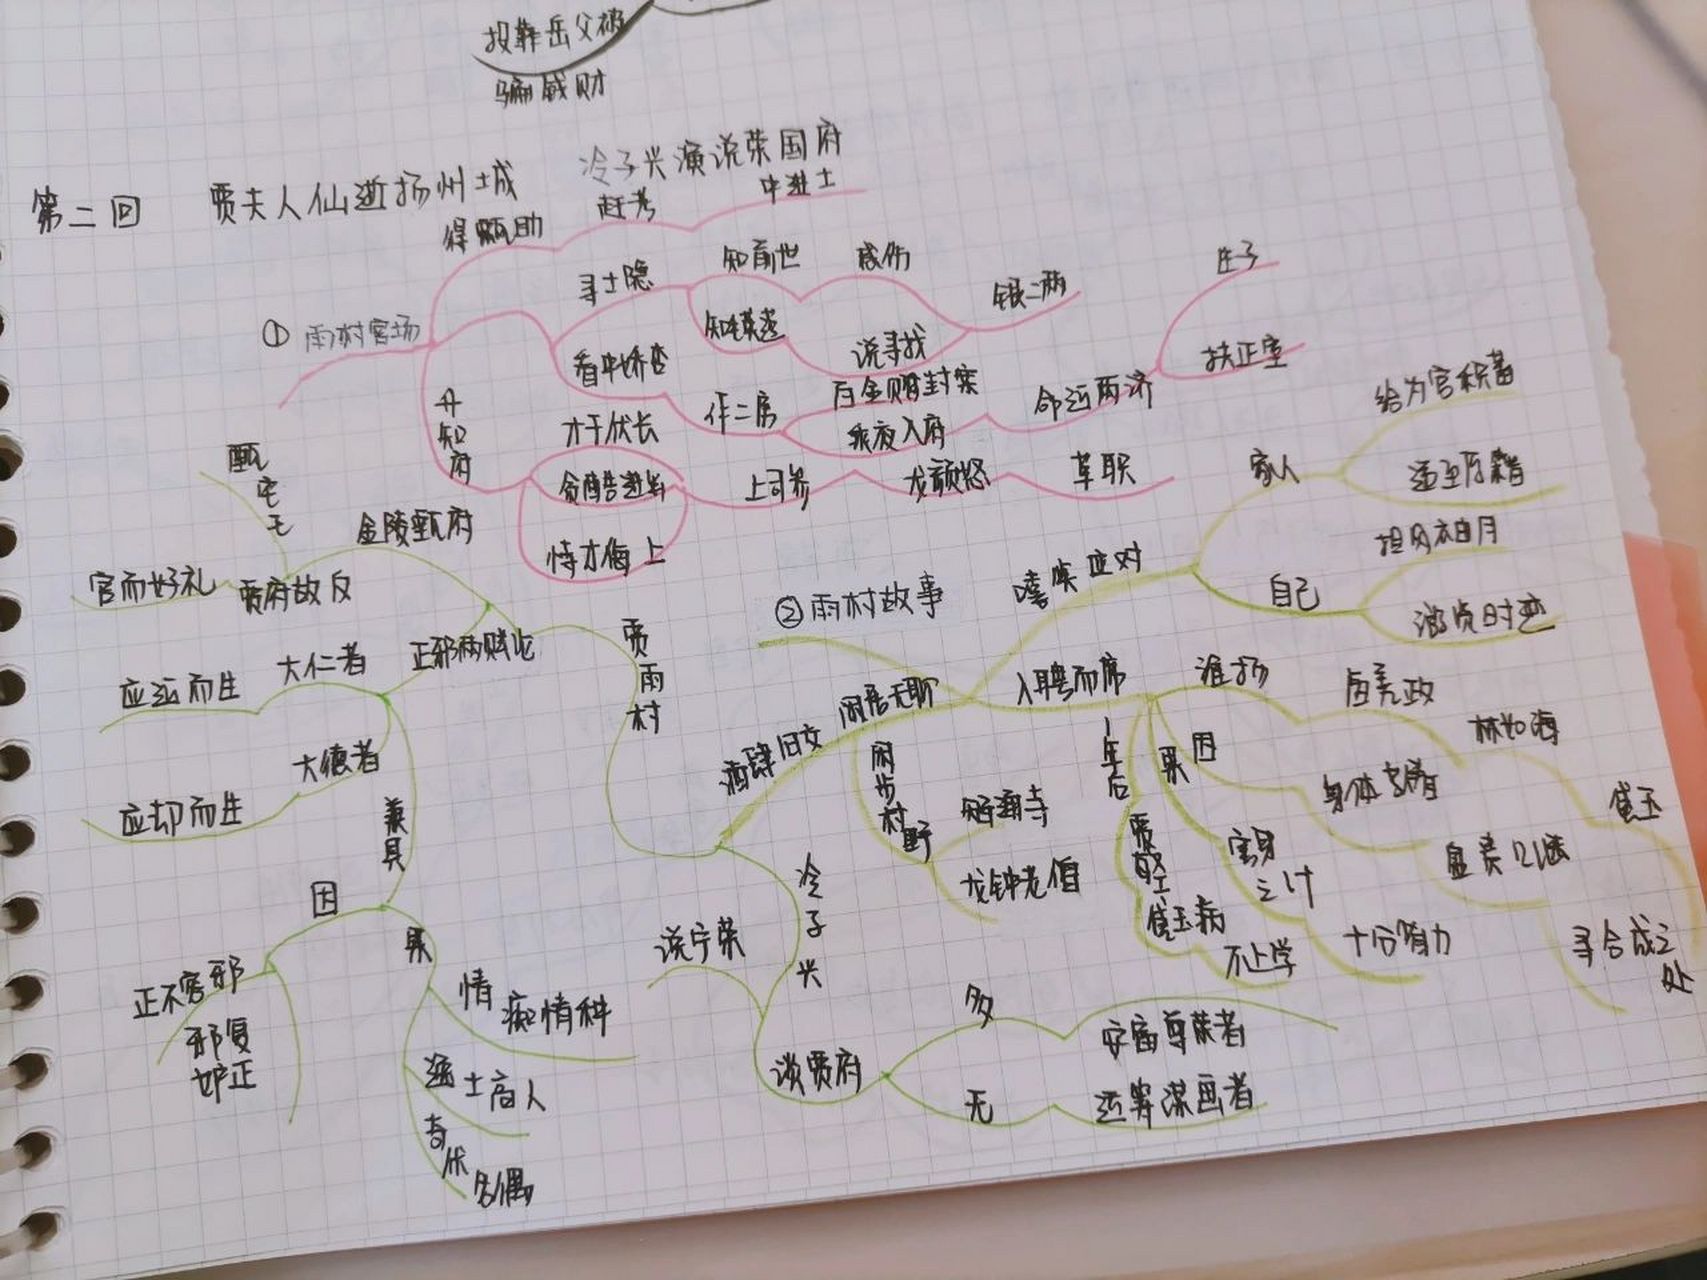 投靠岳父被
骗钱财
第二回 贾夫人仙逝扬州城 冷子兴演说荣国府
① 雨村官场
得甄助
赶考
中进士
寻士隐
知前世
感伤
知英莲
说寻找
银二两
看中娇杏
作二房
百金赠封肃
乘夜入府
命运两济
生子
扶正室
升知府
才干优长
贪酷
恃才侮上
上司参
龙颜怒
革职
② 雨村故事
嘻笑应对
家人
给为官积蓄
送至原籍
自己
担风袖月
游览时迹
闲居无聊
入聘而席
淮扬
盐政
林如海
黛玉
因
身体
盘费
寻合成之处
果
容身之计
十分省力
1年后
贾敏
黛玉病
不上学
闲步村野
智通寺
龙钟老僧
酒肆旧友
贾雨村
金陵甄府
甄宝玉
贾府故友
官而好礼
正邪两赋论
大仁者
应运而生
大德者
应劫而生
兼具
因
正不容邪
邪复妒正
果
情痴情种
逸士高人
奇优名倡
冷子兴
说宁荣
谈贾府
多
安富尊荣者
无
运筹谋画者